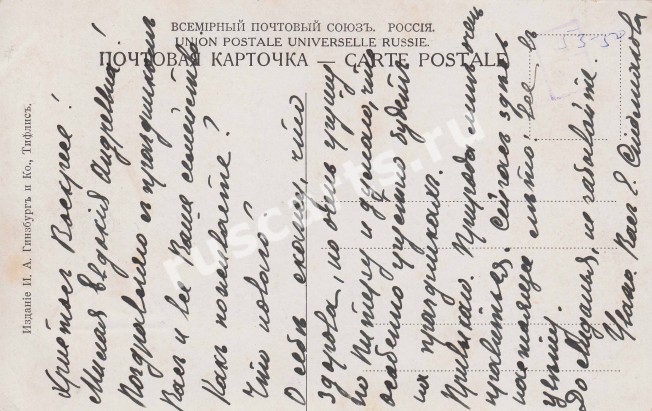 ВСЕМІРНЫЙ ПОЧТОВЫЙ СОЮЗЪ. РОССІЯ.
UNION POSTALE UNIVERSELLE RUSSIE.
ПОЧТОВАЯ КАРТОЧКА — CARTE POSTALE
Изданіе И. А. Гинзбургъ и Ко., Тифлисъ.
Христосъ Воскресе!
Милая Евдокія Андреевна!
Поздравляю съ праздникомъ
Васъ и все Ваше семейство.
Какъ поживаете?
Что новаго?
О себѣ скажу, что
здорова, но очень скучаю
по Питеру и думаю, что
особенно грустно будетъ
на праздникахъ.
Природа мнѣ очень
нравиться. Сейчасъ здѣсь
настоящее лѣто: все въ
До свиданія, не забывайте.
Уваж. Васъ Е.
ruscarts.ru